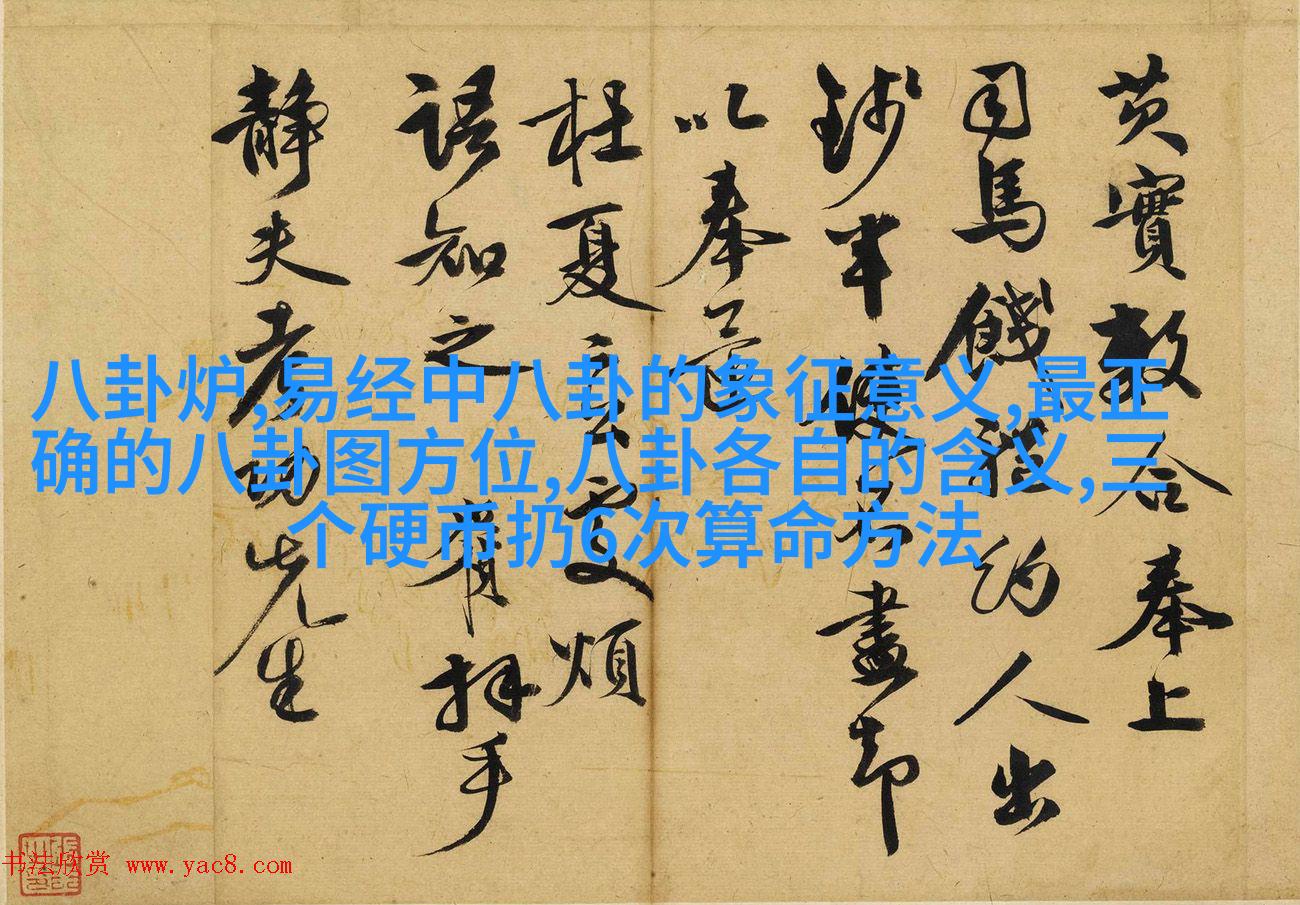 八卦炉,易经中八卦的象征意义,最正
确的八卦图方位,八卦各自的含义,三
个硬币扔6次算命方法
芡實數合奉上
司馬餞禮約人出
錢半盡却
以奉還
枉夏煩
語知之拜手
静夫老先生
书法欣赏 www.yac8.com